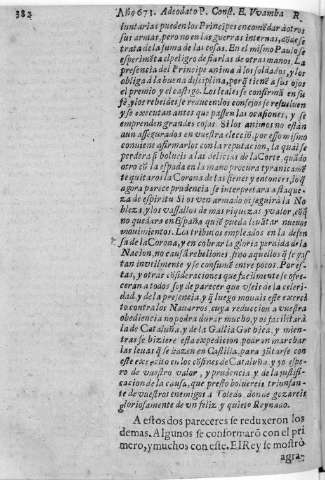 382 Año 673. Adeodato P. Const. E. Vvamba R.
luntarias pueden los Principes encomẽdar à otros
sus armas, pero no en las guerras internas, dõde se
trata de la suma de las cosas. En el mismo Paulo se
esperimẽta el peligro de fiarlas de otras manos. La
presencia del Principe anima à los soldados, y los
obliga à la buena disciplina, porq̃ tienẽ à sus ojos
el premio y el castigo. Los leales se confirmã en su
fè, y los rebeldes se reducen, los consejos se resuelven
y se executan antes que passen las ocasiones, y se
emprenden grandes cosas. Si los animos no estàn
aun assegurados en vuestra elecciõ, por esso mismo
conviene afirmarlos con la reputacion, la qual se
perderà si bolveis à las delicias de la Corte, quãdo
otro cõ la espada en la mano procura tyranicamẽ
te quitaros la Corona de las sienes y entonces, lo q̃
agora parece prudencia se interpretarà a flaque-
za de espiritu. Si os ven armado os seguirà la No
bleza, y los vassallos de mas riqueza y valor, con q̃
no quedarà en España quiẽ pueda levãtar nuevos
movimientos. Los tributos empleados en la defen
sa de la Corona, y en cobrar la gloria perdida de la
Nacion, no causã rebeliones, sino aquellos q̃ se gas
tan invtilmente y se consumẽ entre pocos. Por es-
tas, y otras cõsideraciones que facilmente se ofre-
ceràn a todos soy de parecer que vseis de la celeri-
dad, y de la presencia, y q̃ luego movais este exerci
to contra los Navarros, cuya reduccion a vuestra
obediencia no podrà durar mucho, y os facilitarà
la de Cataluña, y de la Gallia Gotbica, y mien-
tras se biziere esta expedicion podràn marchar
las levas q̃ se hazen en Castilla, para jũtarse con
este exercito en los cõfines de Cataluña, y yo espe-
ro de vuestro valor, y prudencia y de la justifi-
cacion de la causa, que presto bolvereis triunfan-
te de vuestros enemigos à Toledo, donde gozareis
gloriosamente de vn feliz, y quieto Reynado.
A estos dos pareceres se reduxeron los
demas. Algunos se conformarõ con el pri
mero, y muchos con este. El Rey se mostrò
agra-